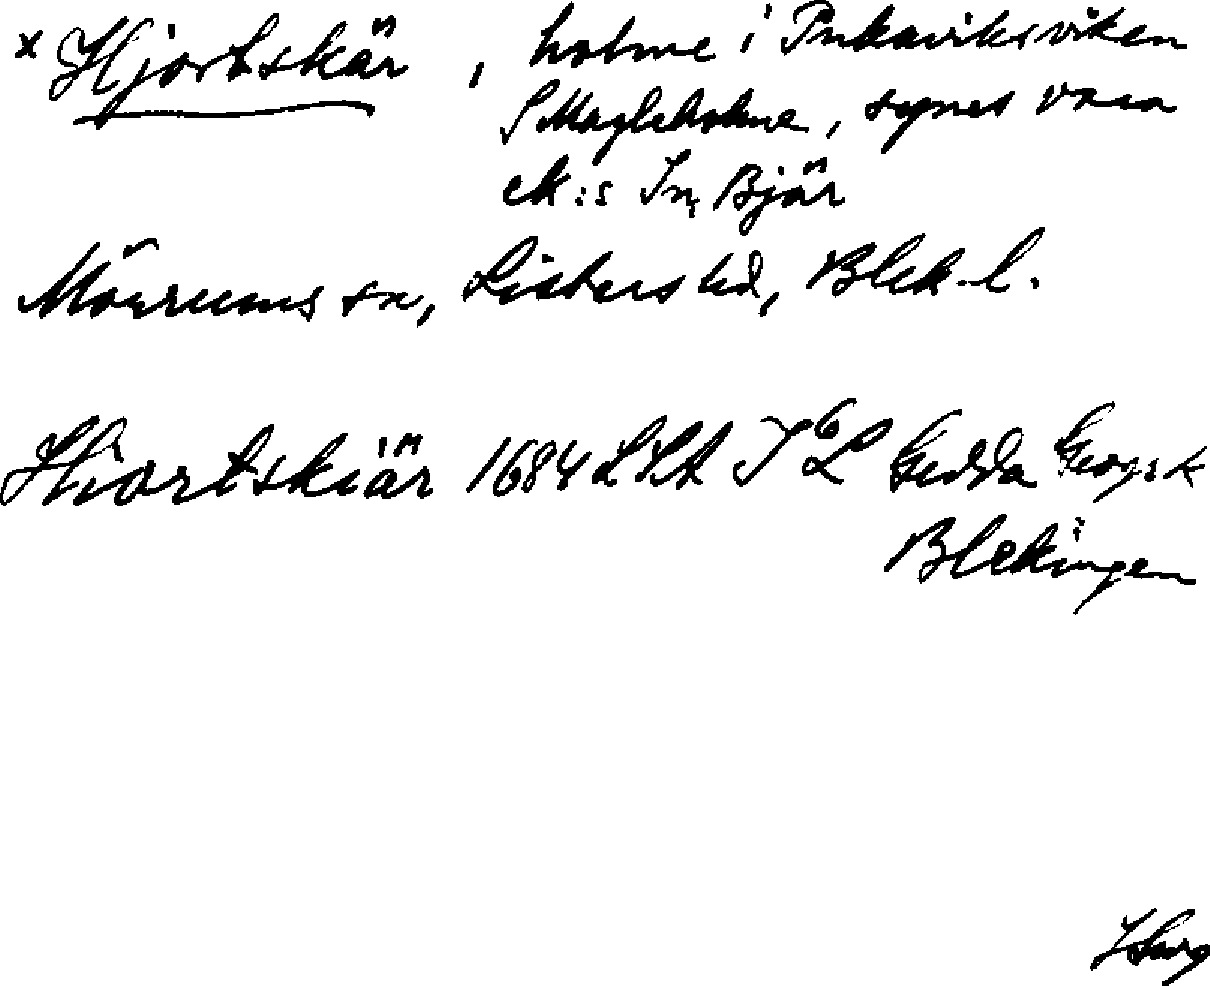 x Hjortskär, holme i Pukaviksviken
S Magleholme, synes vara
ek:s In, Bjär
Mörrums sn, Listers hd, Blek. l.
Hiortskiär 1684 LSA Gedda Geogr k
Blekingen